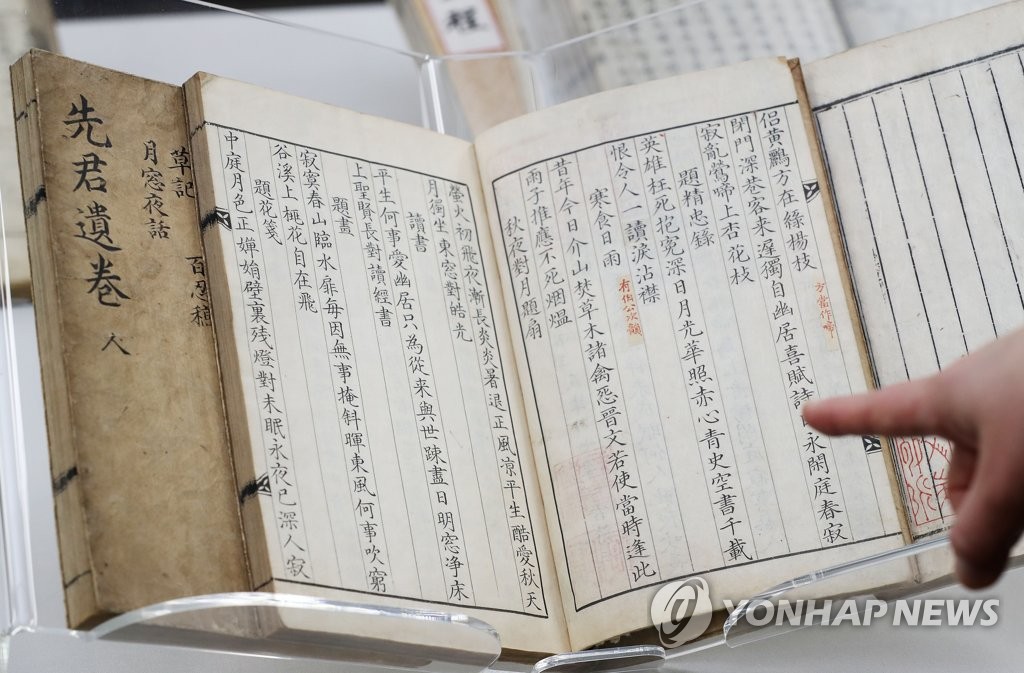 侶黃鸝方在綠楊枝
方當作啼
閉門深巷客来遲獨自幽居喜賦詩 永閑庭春寂
寂亂鶯啼上杏花枝
題精忠錄
英雄枉死抱寃深日月光華照赤心青史空書千載
恨令人一讀淚沾襟
寒食日雨
昔年今日介山焚草木諸禽惡晉文若使當時逢此
雨子推應不死烟熅
秋夜對月題扇
螢火初飛夜漸長炎炎暑退正風凉平生酷愛秋天
月獨坐東窓對皓光
讀書
平生何事愛幽居只為從来與世踈畫日明窓净床
上聖賢長對讀經書
題畫
寂寞春山臨水扉每因無事掩斜暉東風何事吹窮
谷溪上桃花自在飛
題花箋
中庭月色正嬋娟壁裏残燈對未眠永夜已深人寂
草記
百忍稿
月窓夜話
先君遺卷 人
YONHAP NEWS